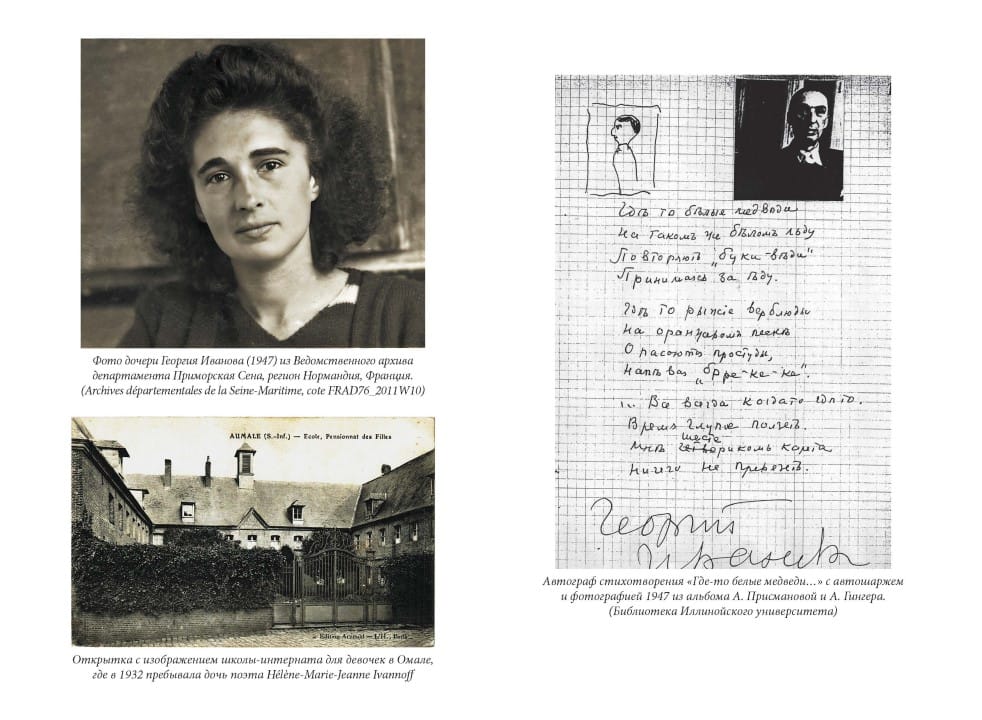 Фото дочери Георгия Иванова (1947) из Ведомственного архива
департамента Приморская Сена, регион Нормандия, Франция.
(Archives départementales de la Seine-Maritime, cote FRAD76_2011W10)
AUMALE (S.-Inf.) — Ecole, Pensionnat des Filles
Edition Acamed — L'H., Paris
Открытка с изображением школы-интерната для девочек в Омале,
где в 1932 пребывала дочь поэта Hélène-Marie-Jeanne Ivannoff
Гдѣ то бѣлые медвѣди
На такомъ же бѣломъ льду
Повторяютъ „буки-вѣди"
Принимаясь за ѣду.
Гдѣ то рыжіе верблюды
На оранжевомъ пескѣ
Опасаются простуды,
Напѣвая „брре-ке-ке".
Все всегда когда то гдѣ то
Время глупое ползетъ.
шесте
Мнѣ четверикомъ карета
Ничего не привезетъ.
Георгій
Ивановъ
Автограф стихотворения «Где-то белые медведи…» с автошаржем
и фотографией 1947 из альбома А. Присмановой и А. Гингера.
(Библиотека Иллинойского университета)